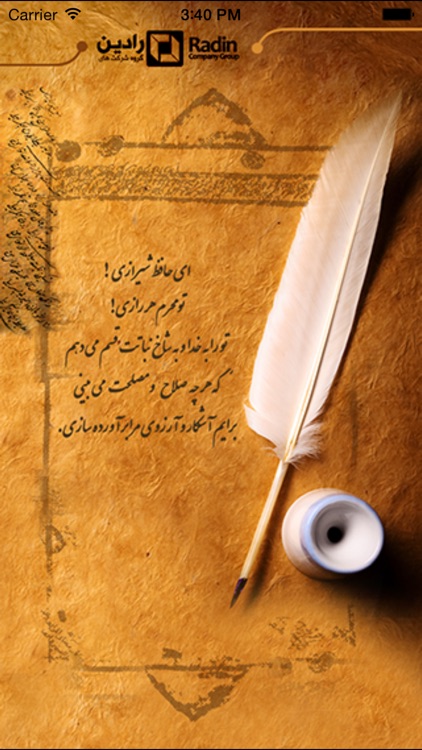 Carrier 3:40 PM
رادین
گروه شرکت های
Radin
Company Group
ای حافظ شیرازی !
تو محرم هر رازی!
تو را به خدا و به شاخ نباتت قسم می دهم
که هر چه صلاح و مصلحت می بینی
برایم آشکار و آرزوی مرا برآورده سازی.